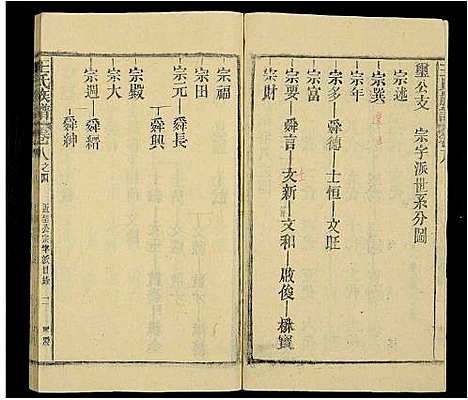 璽公支　宗字派世系分圖
宗述
宗巽
宗年
宗多―舜德―士恒―文旺
宗富
宗要―舜言―文新―文和―啟俊―楙寶
宗財
宗福
宗田
宗元―舜長
舜興
宗殿
宗大
宗週―舜縉
舜紳
王氏族譜 卷八之四